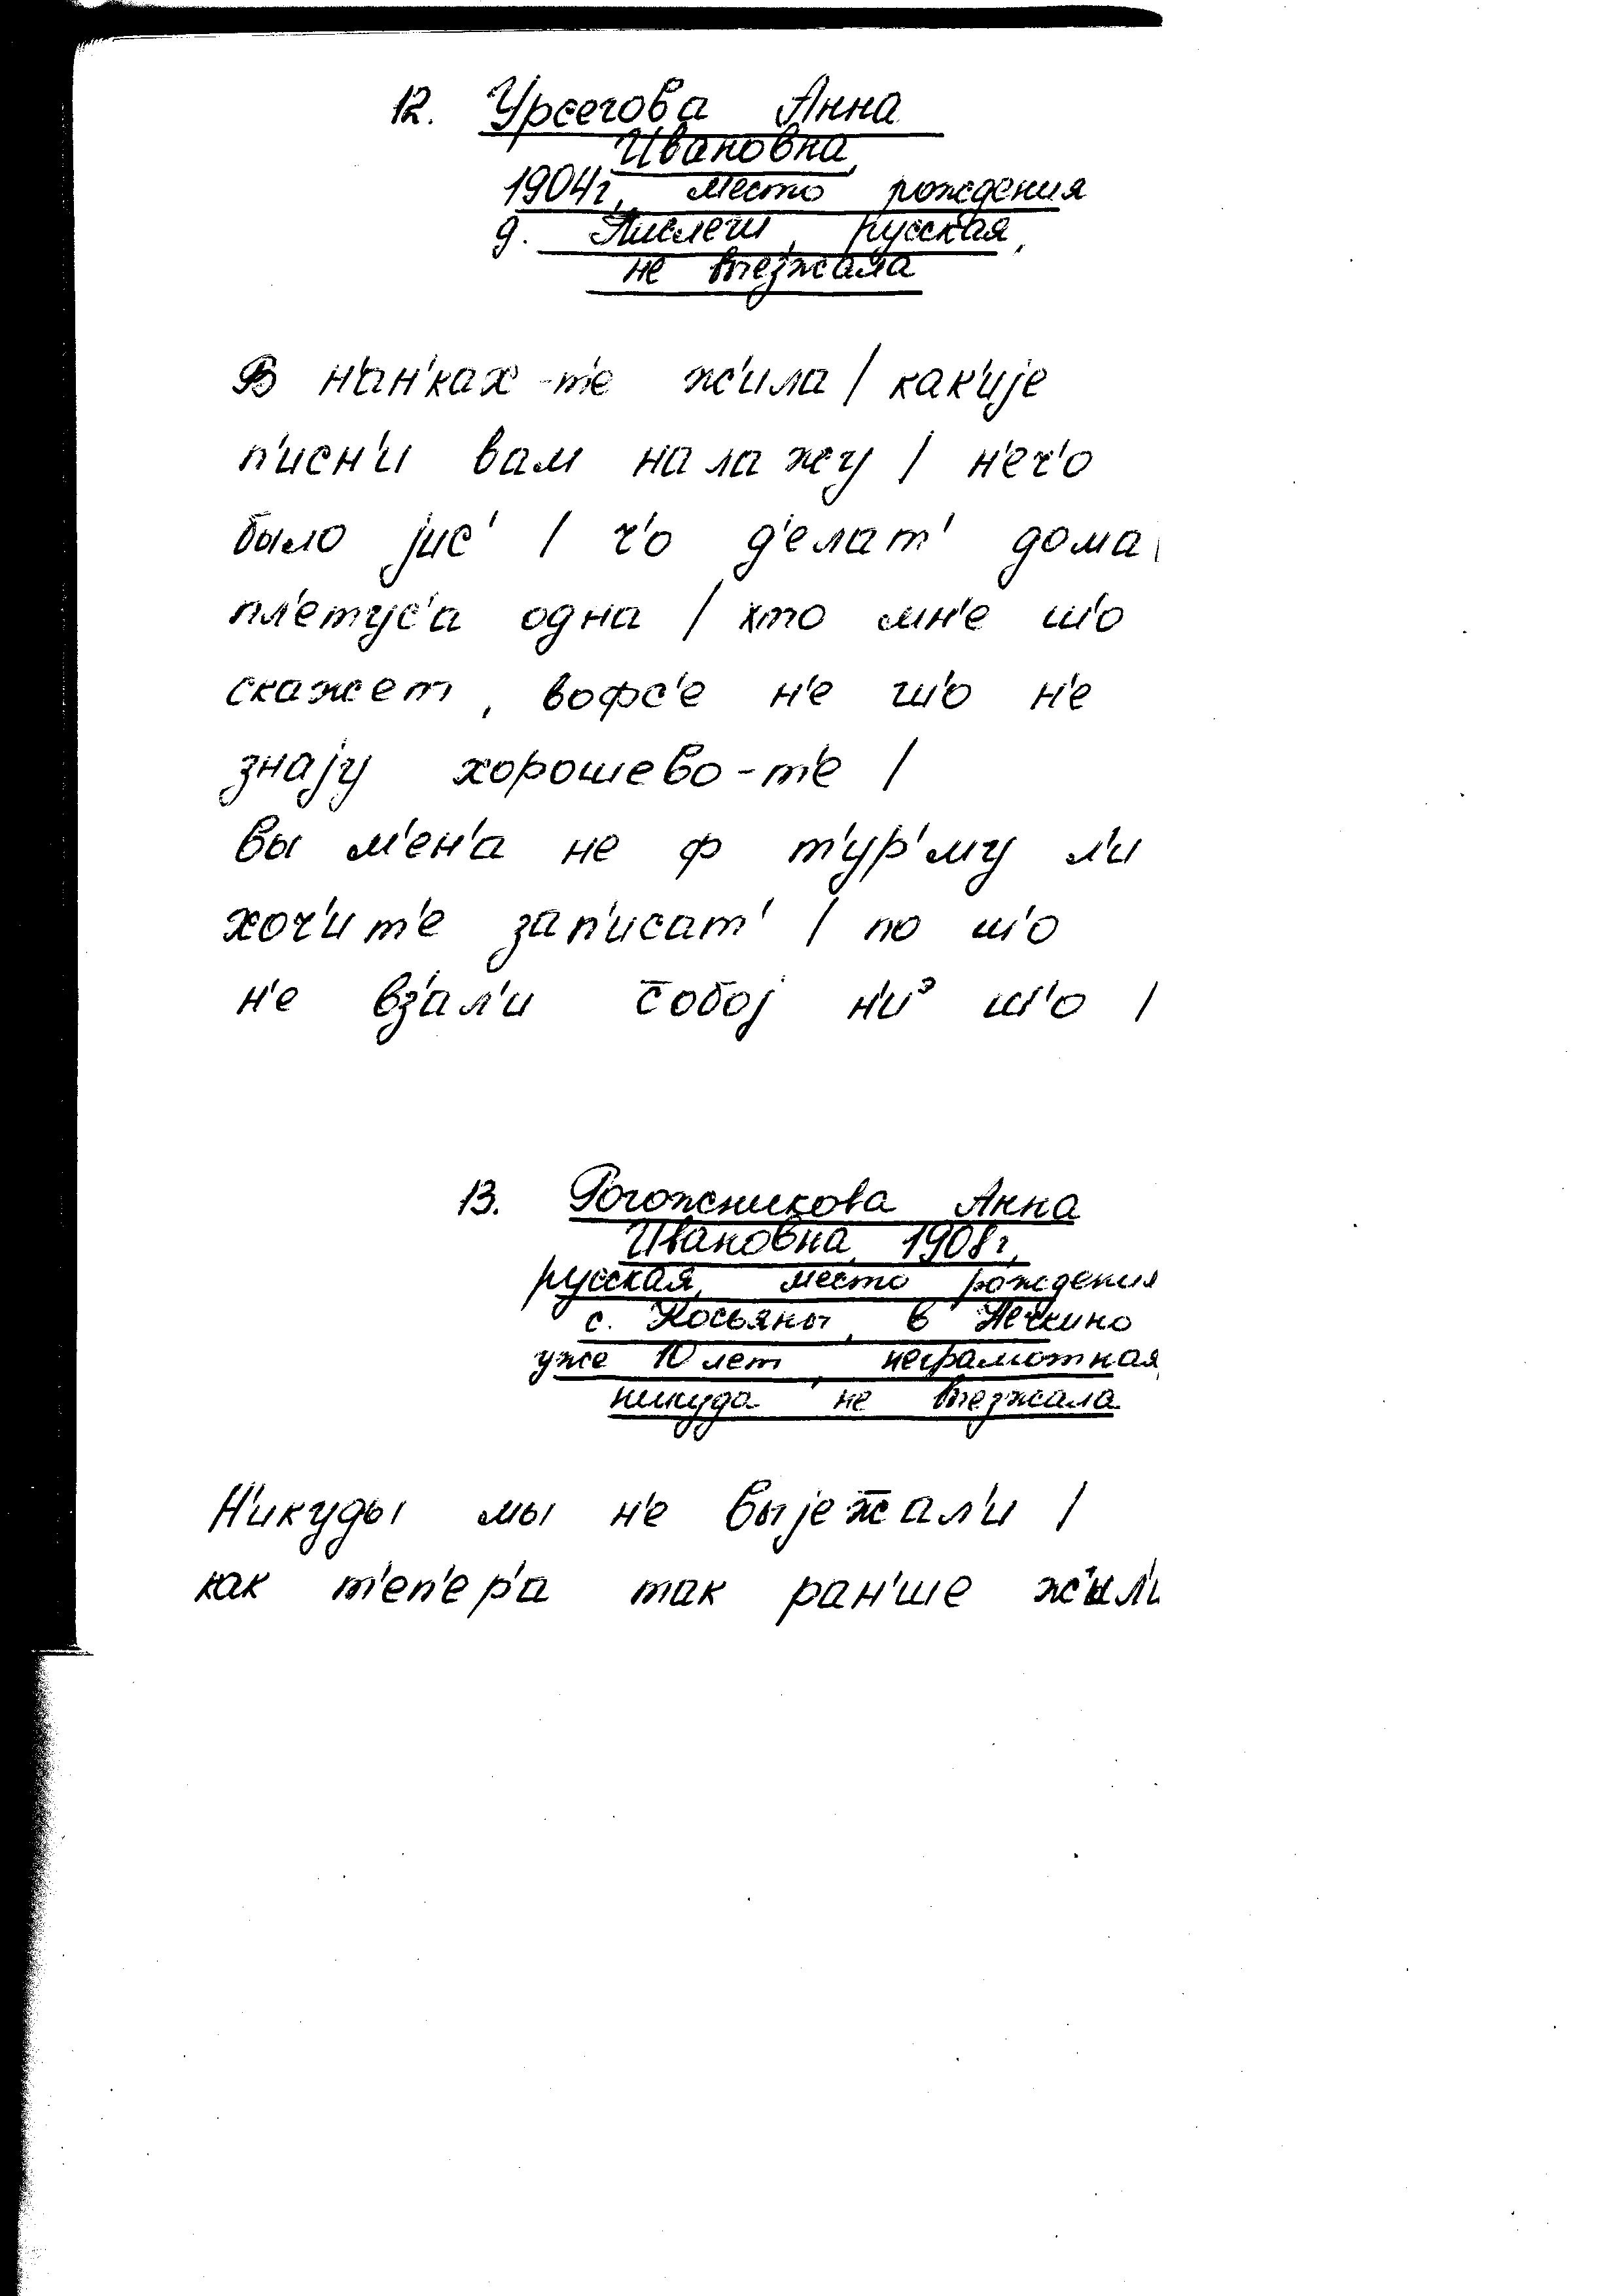 12. Урсегова Анна
Ивановна,
1904г, место рождения
д. Пислеги, русская,
не выезжала
В н'ан'ках-т'е ж'ила / как'ијe
п'исн'и вам налажу / н'еч'о
было јис' / ч'о д'елат' дома /
пл'етус'а одна / хто мн'е ш'о
скажет, вофс'е н'е ш'о н'е
знају хорошево-т'е /
вы м'ен'а не ф т'ур'му л'и
хоч'ит'е зап'исат' / по ш'о
н'е вз'ал'и с̄обој н'иᵌ ш'о /
13. Рогожникова Анна
Ивановна, 1908г,
русская, место рождения
с. Косьяны, в Печкино
уже 10 лет, неграмотная,
никуда не выезжала
Н'икуды мы н'е выјеж̄ал'и /
как т'еп'ер'а так ран'ше ж'ил'и